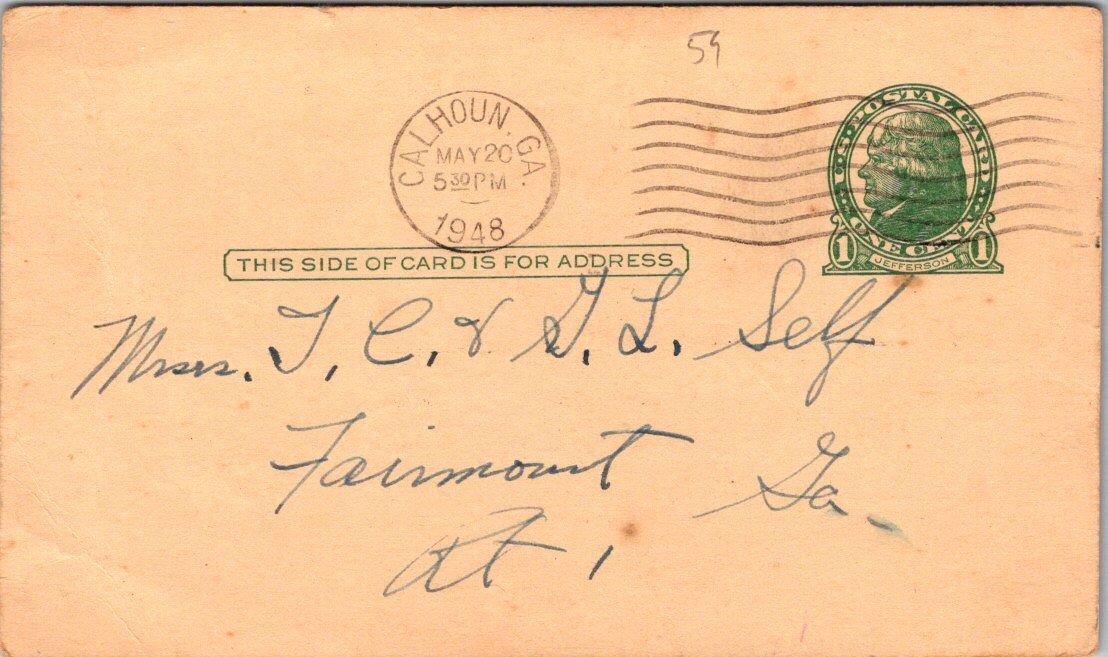 59
CALHOUN, GA.
MAY 20
5 30 PM
1948
U.S. POSTAL CARD
ONE CENT
1 JEFFERSON 1
THIS SIDE OF CARD IS FOR ADDRESS
Mssrs. T. C. & G. L. Self
Fairmount Ga.
Rt 1